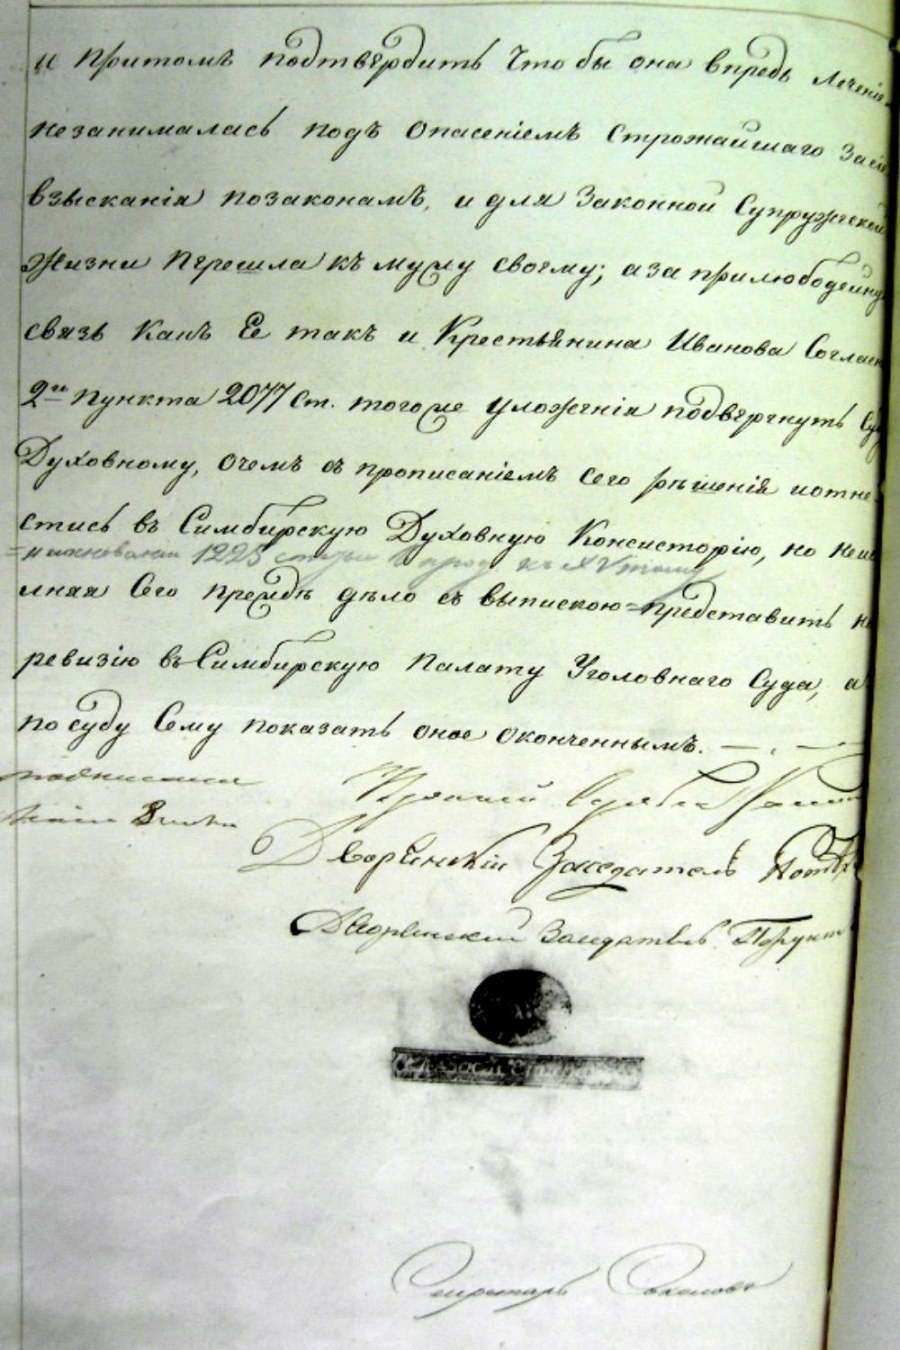 и притомъ подтвердить чтобы она впредь лечені
незанималась подъ опасеніемъ строжайшаго за
взысканія позаконамъ, и для законной супружеской
жизни перешла къ мужу своему; а за прилюбодейну
связь какъ Ее такъ и Крестьянина Иванова Соглас
2го пункта 2077 ст. того же уложенія подвергнуть Су
Духовному, очемъ съ прописаніемъ сего рѣшенія иотне
стись въ Симбирскую Духовную Консисторію, но неис
1223
лняя Сего прежде дѣло съ выпискою представить на
ревизію въ Симбирскую Палату Уголовнаго Суда, а
по суду Сему показать оное оконченнымъ.
Дворянскій Заседатель
Дворянский Заседатель
Секретарь Соколовъ